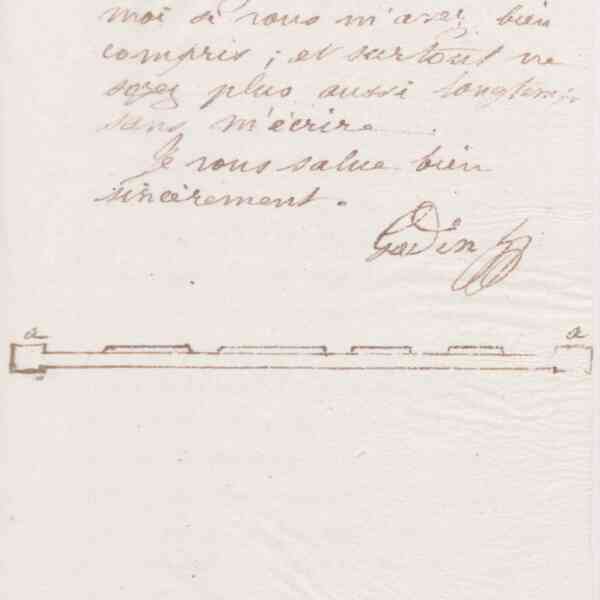 moi si vous m'avez bien
compris ; et surtout ne
soyez plus aussi longtemps
sans m'écrire.
Je vous salue bien
sincèrement.
Godin
a a